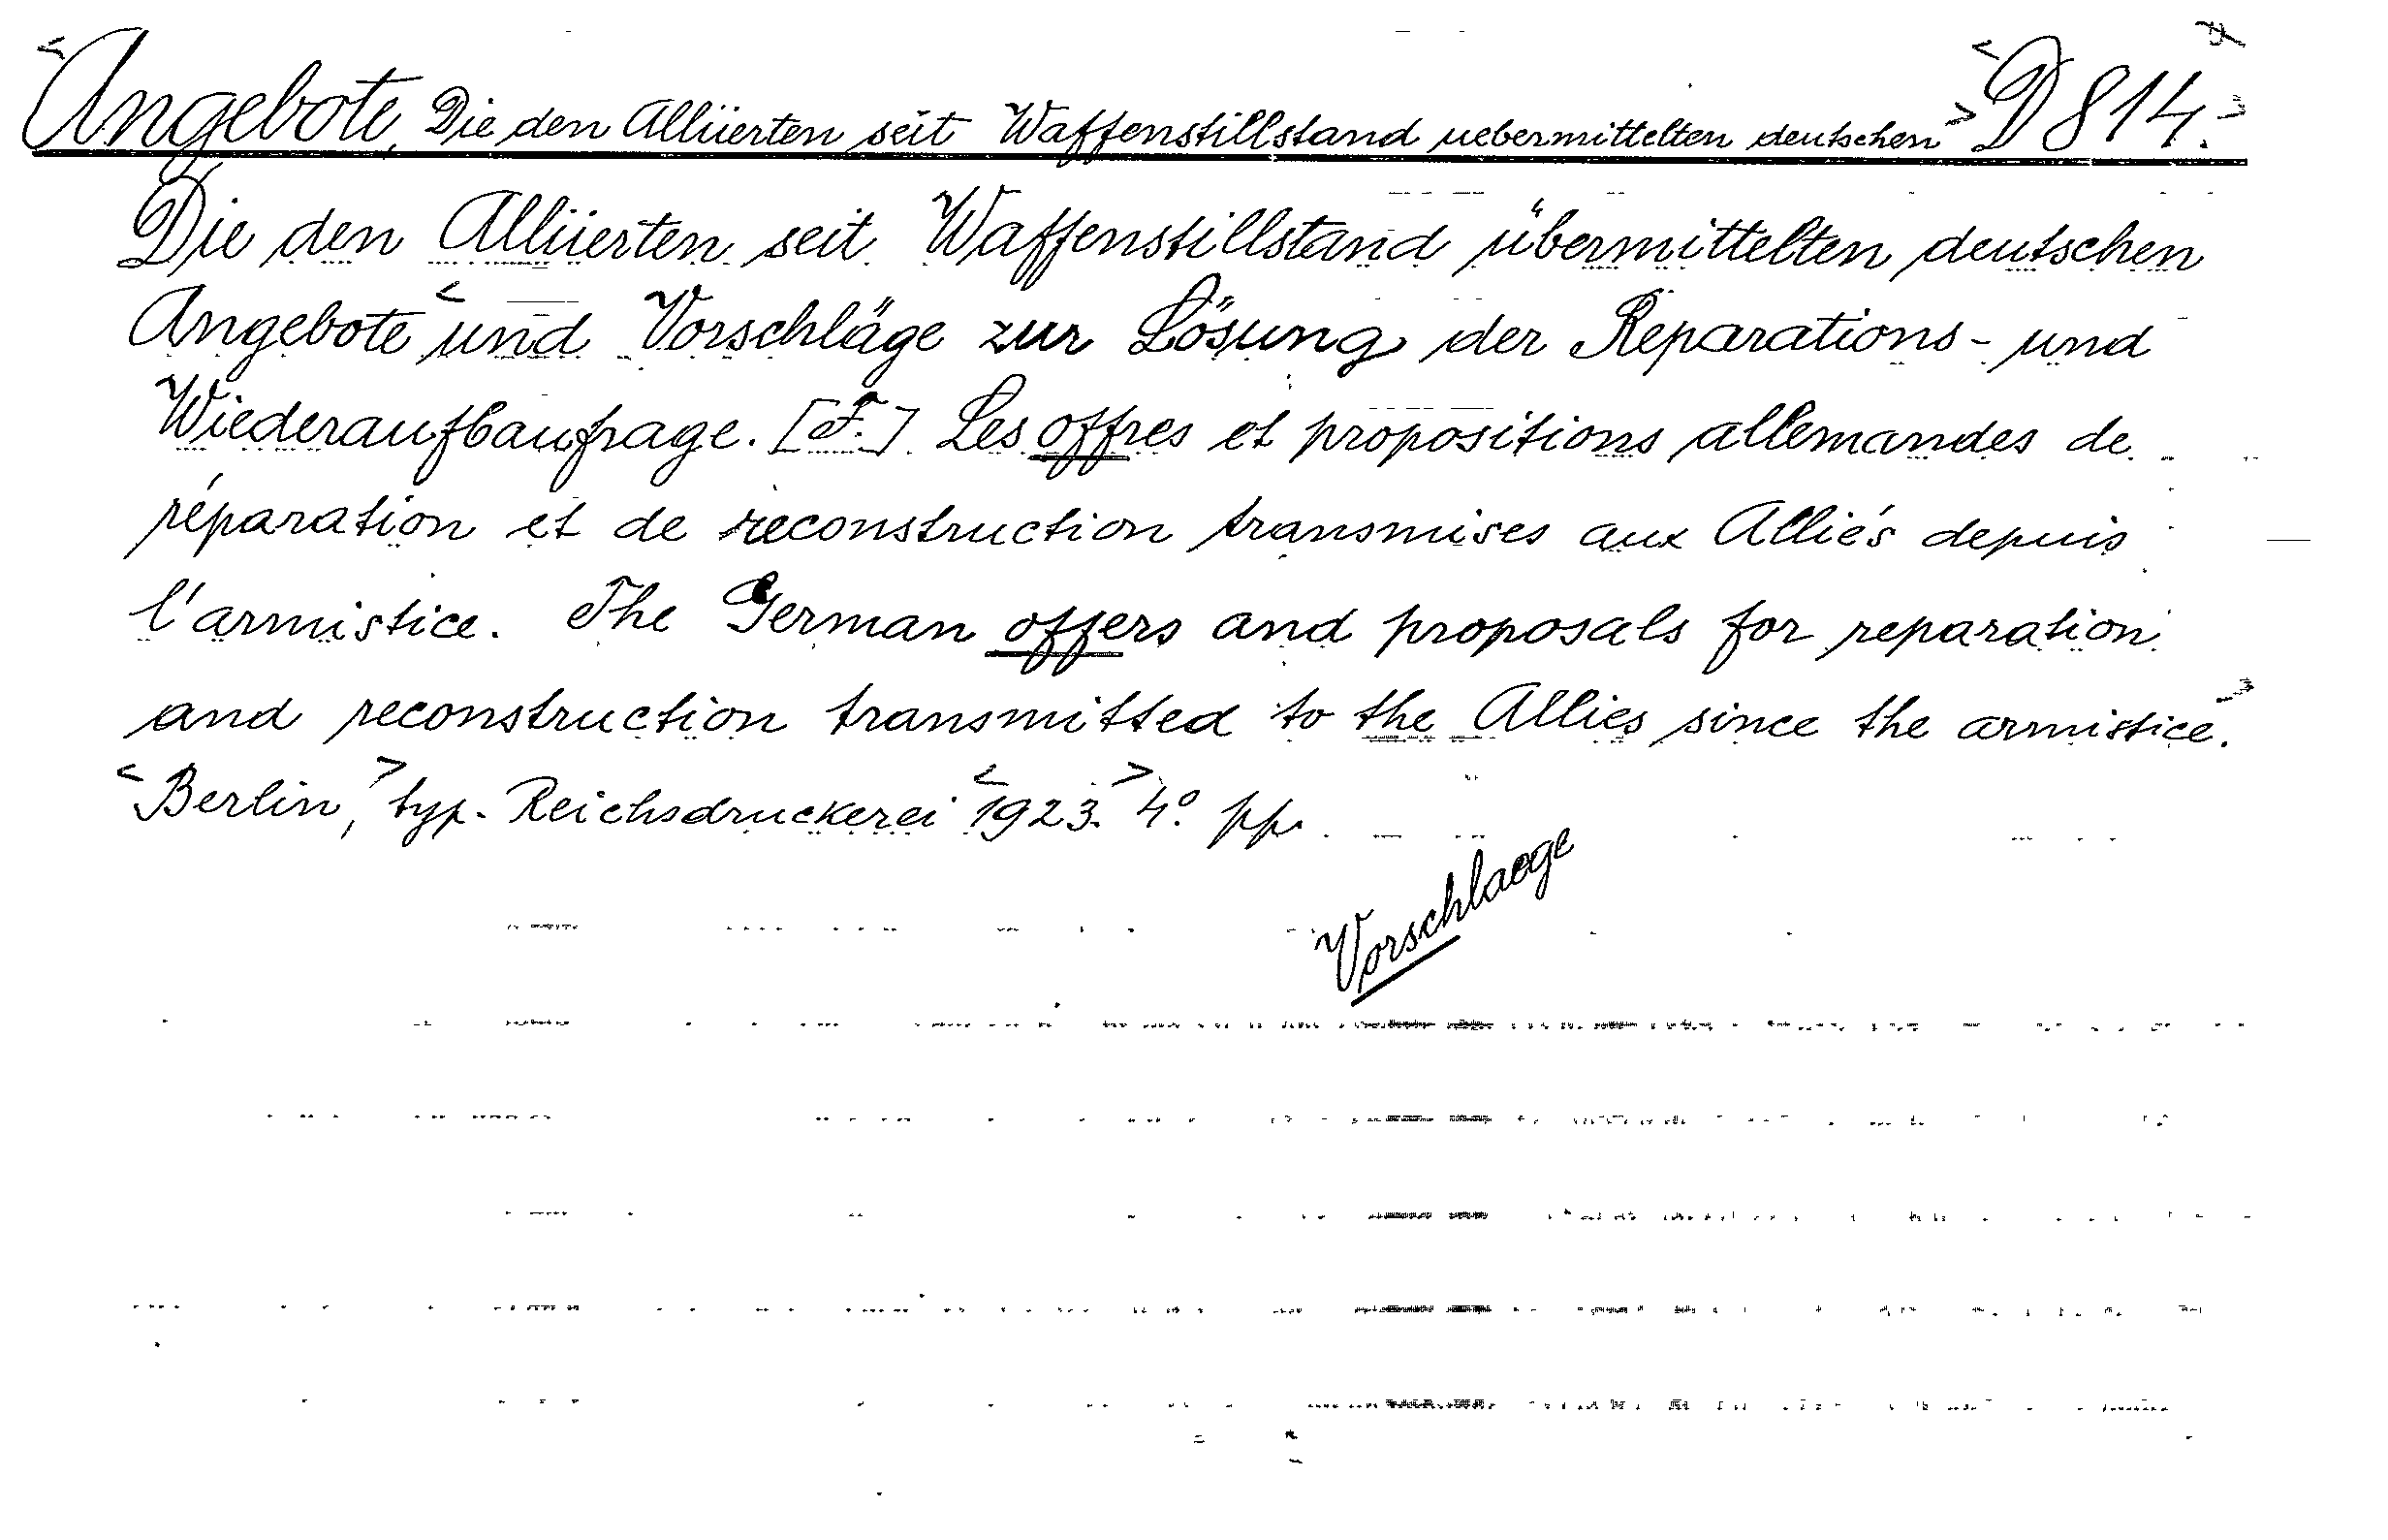 <Angebote, Die den Alliierten seit Waffenstillstand uebermittelten deutschen> <D 814.>
Die den Alliierten seit Waffenstillstand übermittelten deutschen
Angebote <und Vorschläge zur Lösung der Reparations- und
Wiederaufbaufrage. [F.] Les offres et propositions allemandes de
réparation et de reconstruction transmises aux Alliés depuis
l'armistice. The German offers and proposals for reparation
and reconstruction transmitted to the Allies since the armistice.>
<Berlin,> typ. Reichsdruckerei <1923.> 4º pp.
Vorschlaege